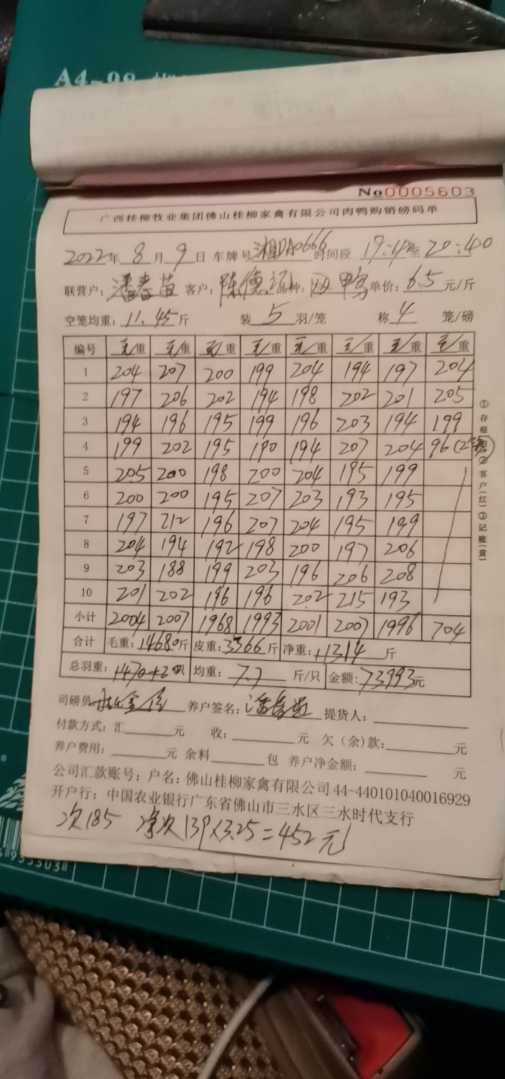 A4-
No0005603
广西桂柳牧业集团佛山桂柳家禽有限公司肉鸭购销磅码单
2022年 8月 9日 车牌号 湘DA0666 时间段 17:40至20:40
联营户: 潘春苗 客户: 陈 种: 鸭 单价: 6.5 元/斤
空笼均重: 11.45斤 装 5 羽/笼 称 4 笼/磅
编号 毛/重 毛/重 毛/重 毛/重 毛/重 毛/重 毛/重 毛/重
1 204 207 200 199 204 194 197 204
2 197 206 202 194 198 202 201 205
3 194 196 195 199 196 203 194 199
4 199 202 195 190 194 207 204 96
5 205 200 198 200 204 195 199
6 200 200 195 207 203 193 195
7 197 212 196 207 204 195 199
8 204 194 192 198 200 197 206
9 203 188 199 203 196 206 208
10 201 202 196 196 202 215 193
小计 2004 2007 1968 1993 2001 2007 1996 704
合计 毛重: 14680斤 皮重: 3366斤 净重: 11314 斤
总羽重: 1470+2 均重: 7.7 斤/只 金额: 73993元
司磅员 养户签名: 潘春苗 提货人:
付款方式: 汇 元 收: 元 欠(余)款: 元
养户费用: 元 余料 包 养户净金额: 元
公司汇款账号: 户名: 佛山桂柳家禽有限公司44-440101040016929
开户行: 中国农业银行广东省佛山市三水区三水时代支行
次185 净次139×3.25=452元
①存根 ②客户(红)③记账(黄)